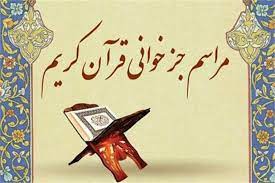 مراسم جزخوانی قرآن کریم